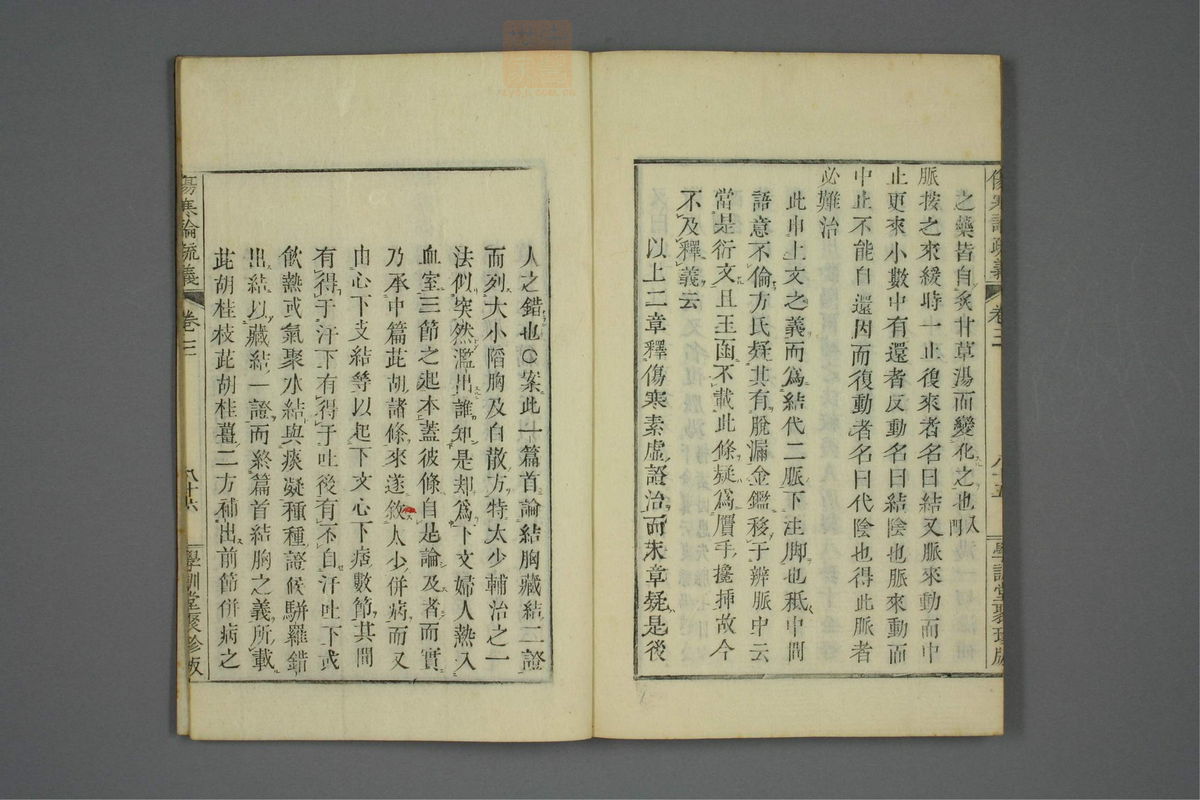 之藥皆自炙甘草湯而變化之也
脈按之來緩時一止復來者名曰結又脈來動而中
止更來小數中有還者反動名曰結陰也脈來動而
中止不能自還因而復動者名曰代陰也得此脈者
必難治
此申上文之義而爲結代二脈下注脚也秪中間
語意不倫方氏疑其有脫漏金鑑移于辨脈中云
當是衍文且玉函不載此條疑爲贋手攙挿故今
不及釋義云
以上二章釋傷寒素虛證治而末章疑是後
傷寒論疏義
卷三
八十五
學訓堂聚珍版
人之錯也○案此一篇首論結胸藏結二證
而列大小陷胸及白散方特太少輔治之一
法似突然濫出誰知是却爲下文婦人熱入
血室三節之起本蓋彼條自是論及者而實
乃承中篇茈胡諸條來遂敘太少併病而又
由心下支結等以起下文心下痞數節其間
有得于汗下有得于吐後有不自汗吐下或
飮熱或氣聚水結與痰凝種種證候駢羅錯
出結以藏結一證而終篇首結胸之義所載
茈胡桂枝茈胡桂薑二方補出前節併病之
傷寒論疏義
卷三
八十六
學訓堂聚珍版